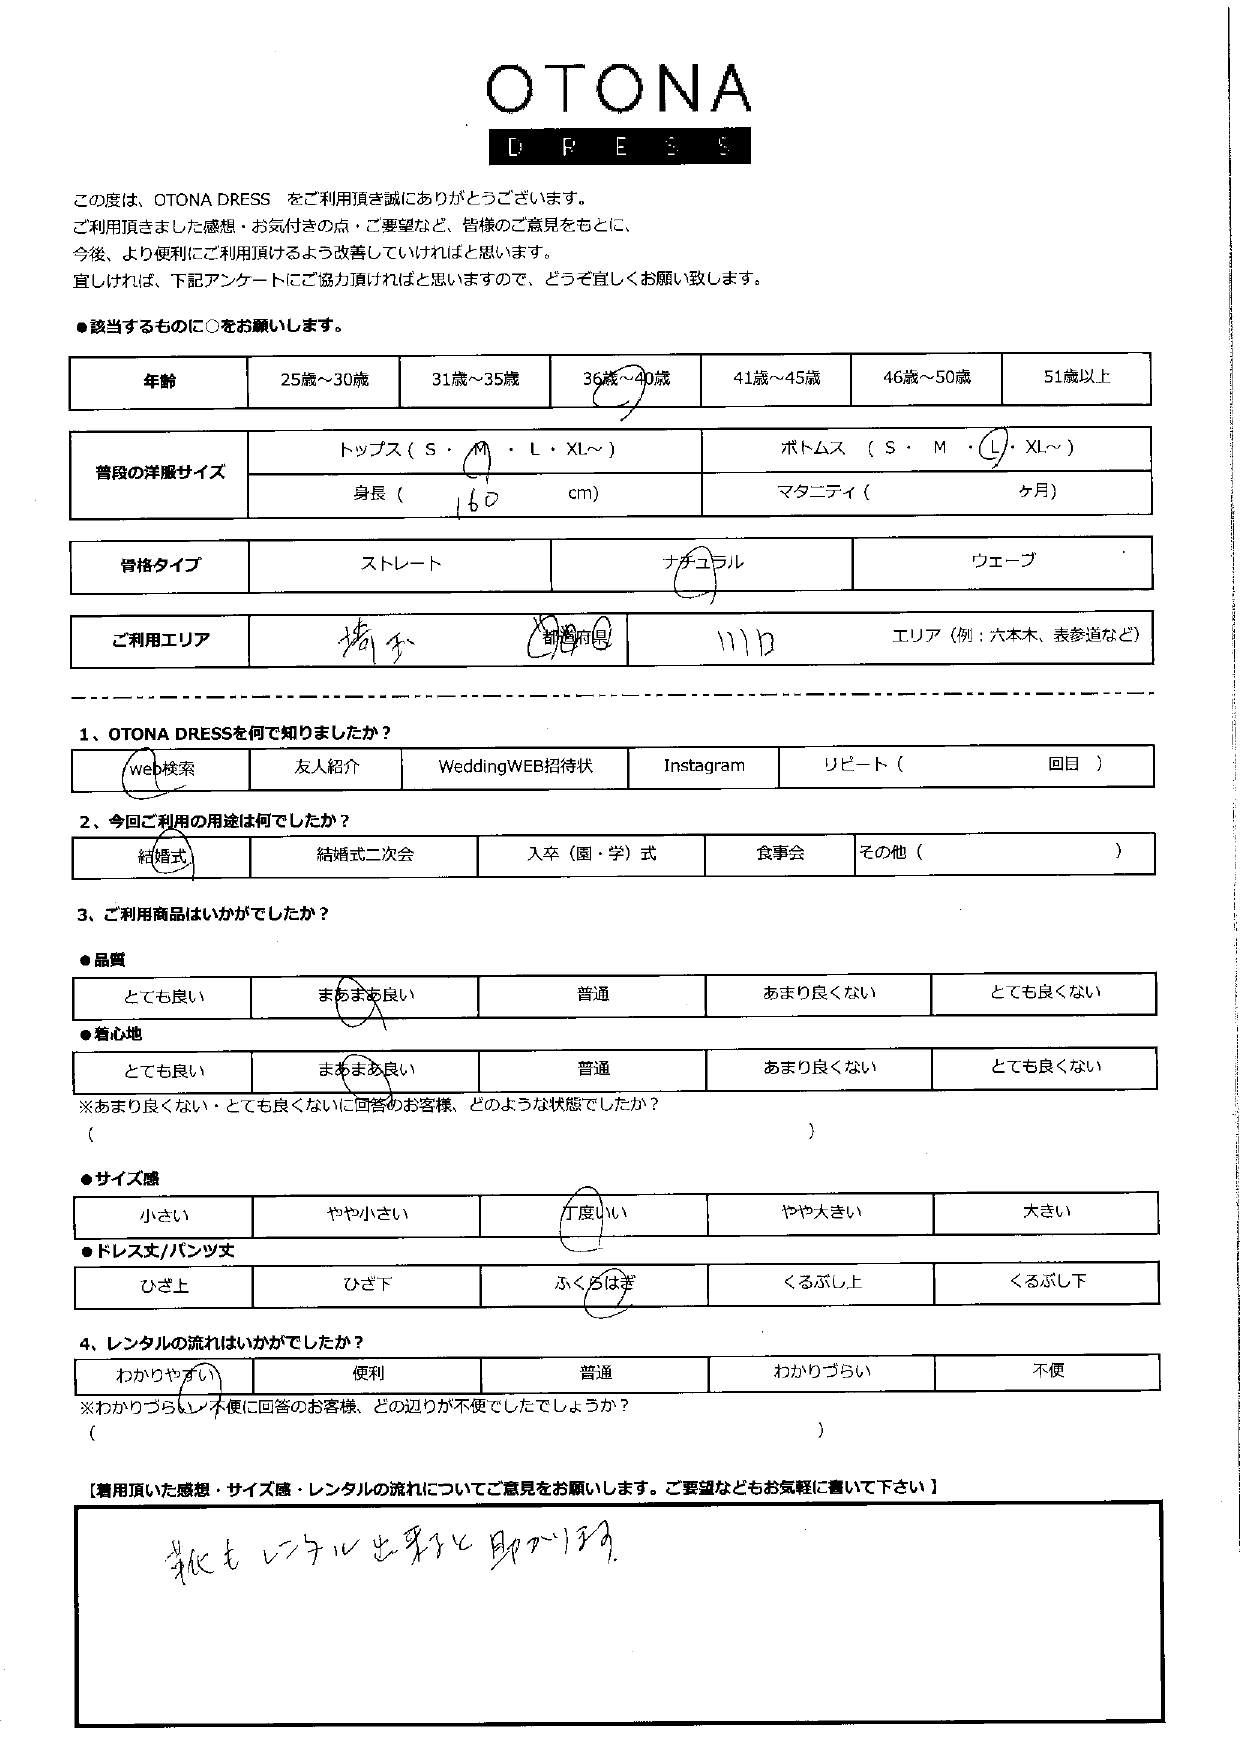 OTONA
DRESS
この度は、OTONA DRESS をご利用頂き誠にありがとうございます。
ご利用頂きました感想・お気付きの点・ご要望など、皆様のご意見をもとに、
今後、より便利にご利用頂けるよう改善していければと思います。
宜しければ、下記アンケートにご協力頂ければと思いますので、どうぞ宜しくお願い致します。
●該当するものに○をお願いします。
年齢 25歳～30歳 31歳～35歳 36歳～40歳 41歳～45歳 46歳～50歳 51歳以上
普段の洋服サイズ トップス ( S ・ M ・ L ・ XL～ ) ボトムス ( S ・ M ・ L ・ XL～ )
身長 ( 160 cm) マタニティ ( ケ月)
骨格タイプ ストレート ナチュラル ウェーブ
ご利用エリア 埼玉 都道府県 川口 エリア（例：六本木、表参道など）
1、OTONA DRESSを何で知りましたか？
web検索 友人紹介 WeddingWEB招待状 Instagram リピート（ 回目 ）
2、今回ご利用の用途は何でしたか？
結婚式 結婚式二次会 入卒（園・学）式 食事会 その他（ ）
3、ご利用商品はいかがでしたか？
●品質
とても良い まあまあ良い 普通 あまり良くない とても良くない
●着心地
とても良い まあまあ良い 普通 あまり良くない とても良くない
※あまり良くない・とても良くないに回答のお客様、どのような状態でしたか？
( )
●サイズ感
小さい やや小さい 丁度いい やや大きい 大きい
●ドレス丈/パンツ丈
ひざ上 ひざ下 ふくらはぎ くるぶし上 くるぶし下
4、レンタルの流れはいかがでしたか？
わかりやすい 便利 普通 わかりづらい 不便
※わかりづらい／不便に回答のお客様、どの辺りが不便でしたでしょうか？
( )
【着用頂いた感想・サイズ感・レンタルの流れについてご意見をお願いします。ご要望などもお気軽に書いて下さい】
靴もレンタル出来ると助かります。